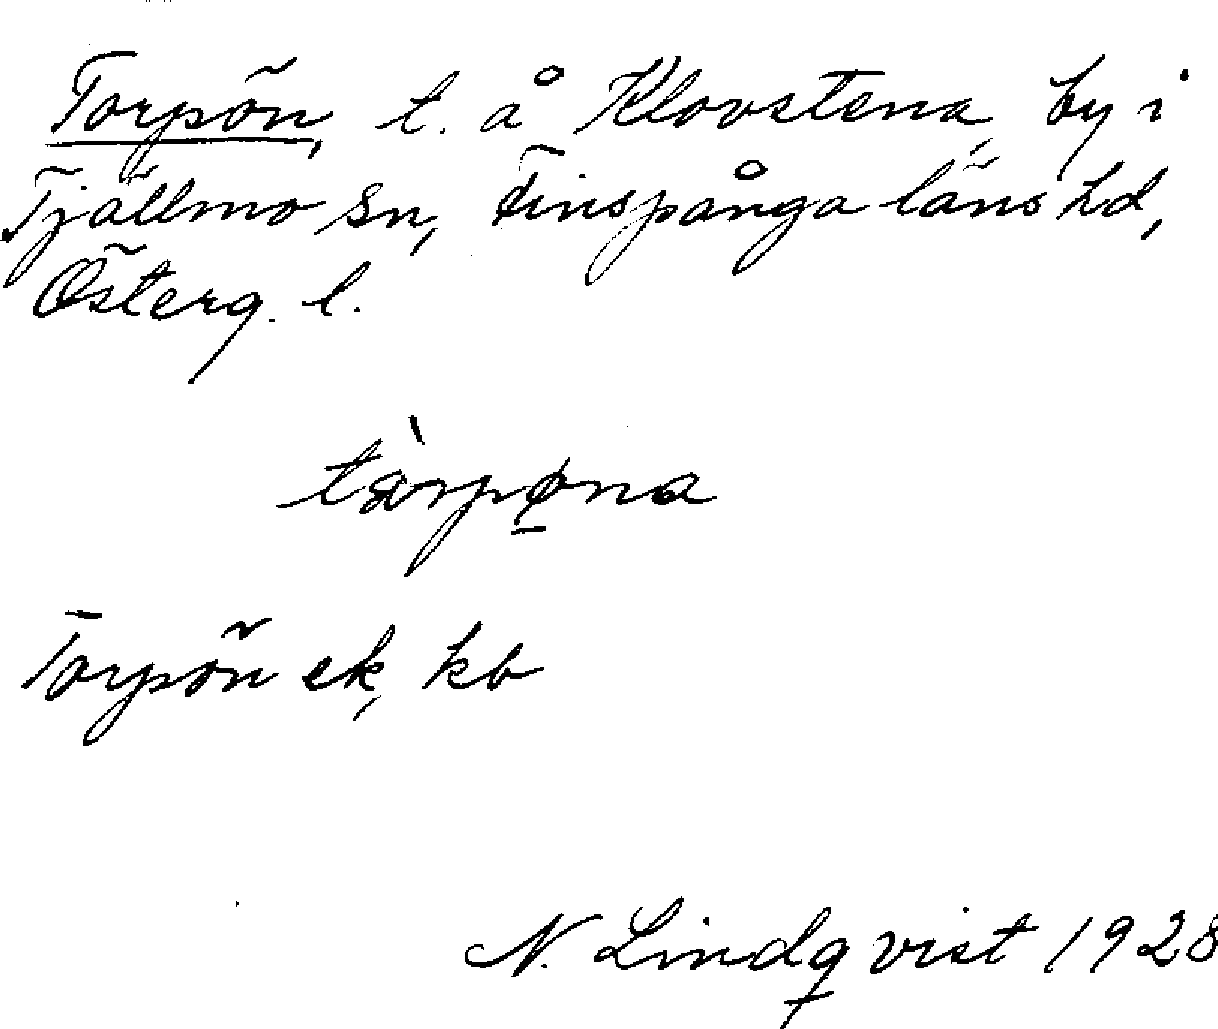 Torpön, t. å Klovstena, by i
Tjällmo sn, Finspånga läns hd,
Österg. l.
tàrpøna
Torpön ek, kb
N. Lindqvist 1928